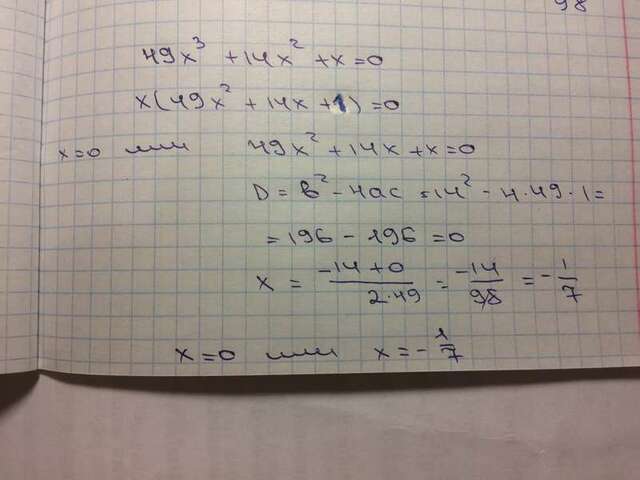 98
49x³ + 14x² + x = 0
x(49x² + 14x + 1) = 0
x = 0 или 49x² + 14x + x = 0
D = b² - 4ac = 14² - 4·49·1 =
= 196 - 196 = 0
x = \frac{-14 + 0}{2·49} = \frac{-14}{98} = -\frac{1}{7}
x = 0 или x = -\frac{1}{7}